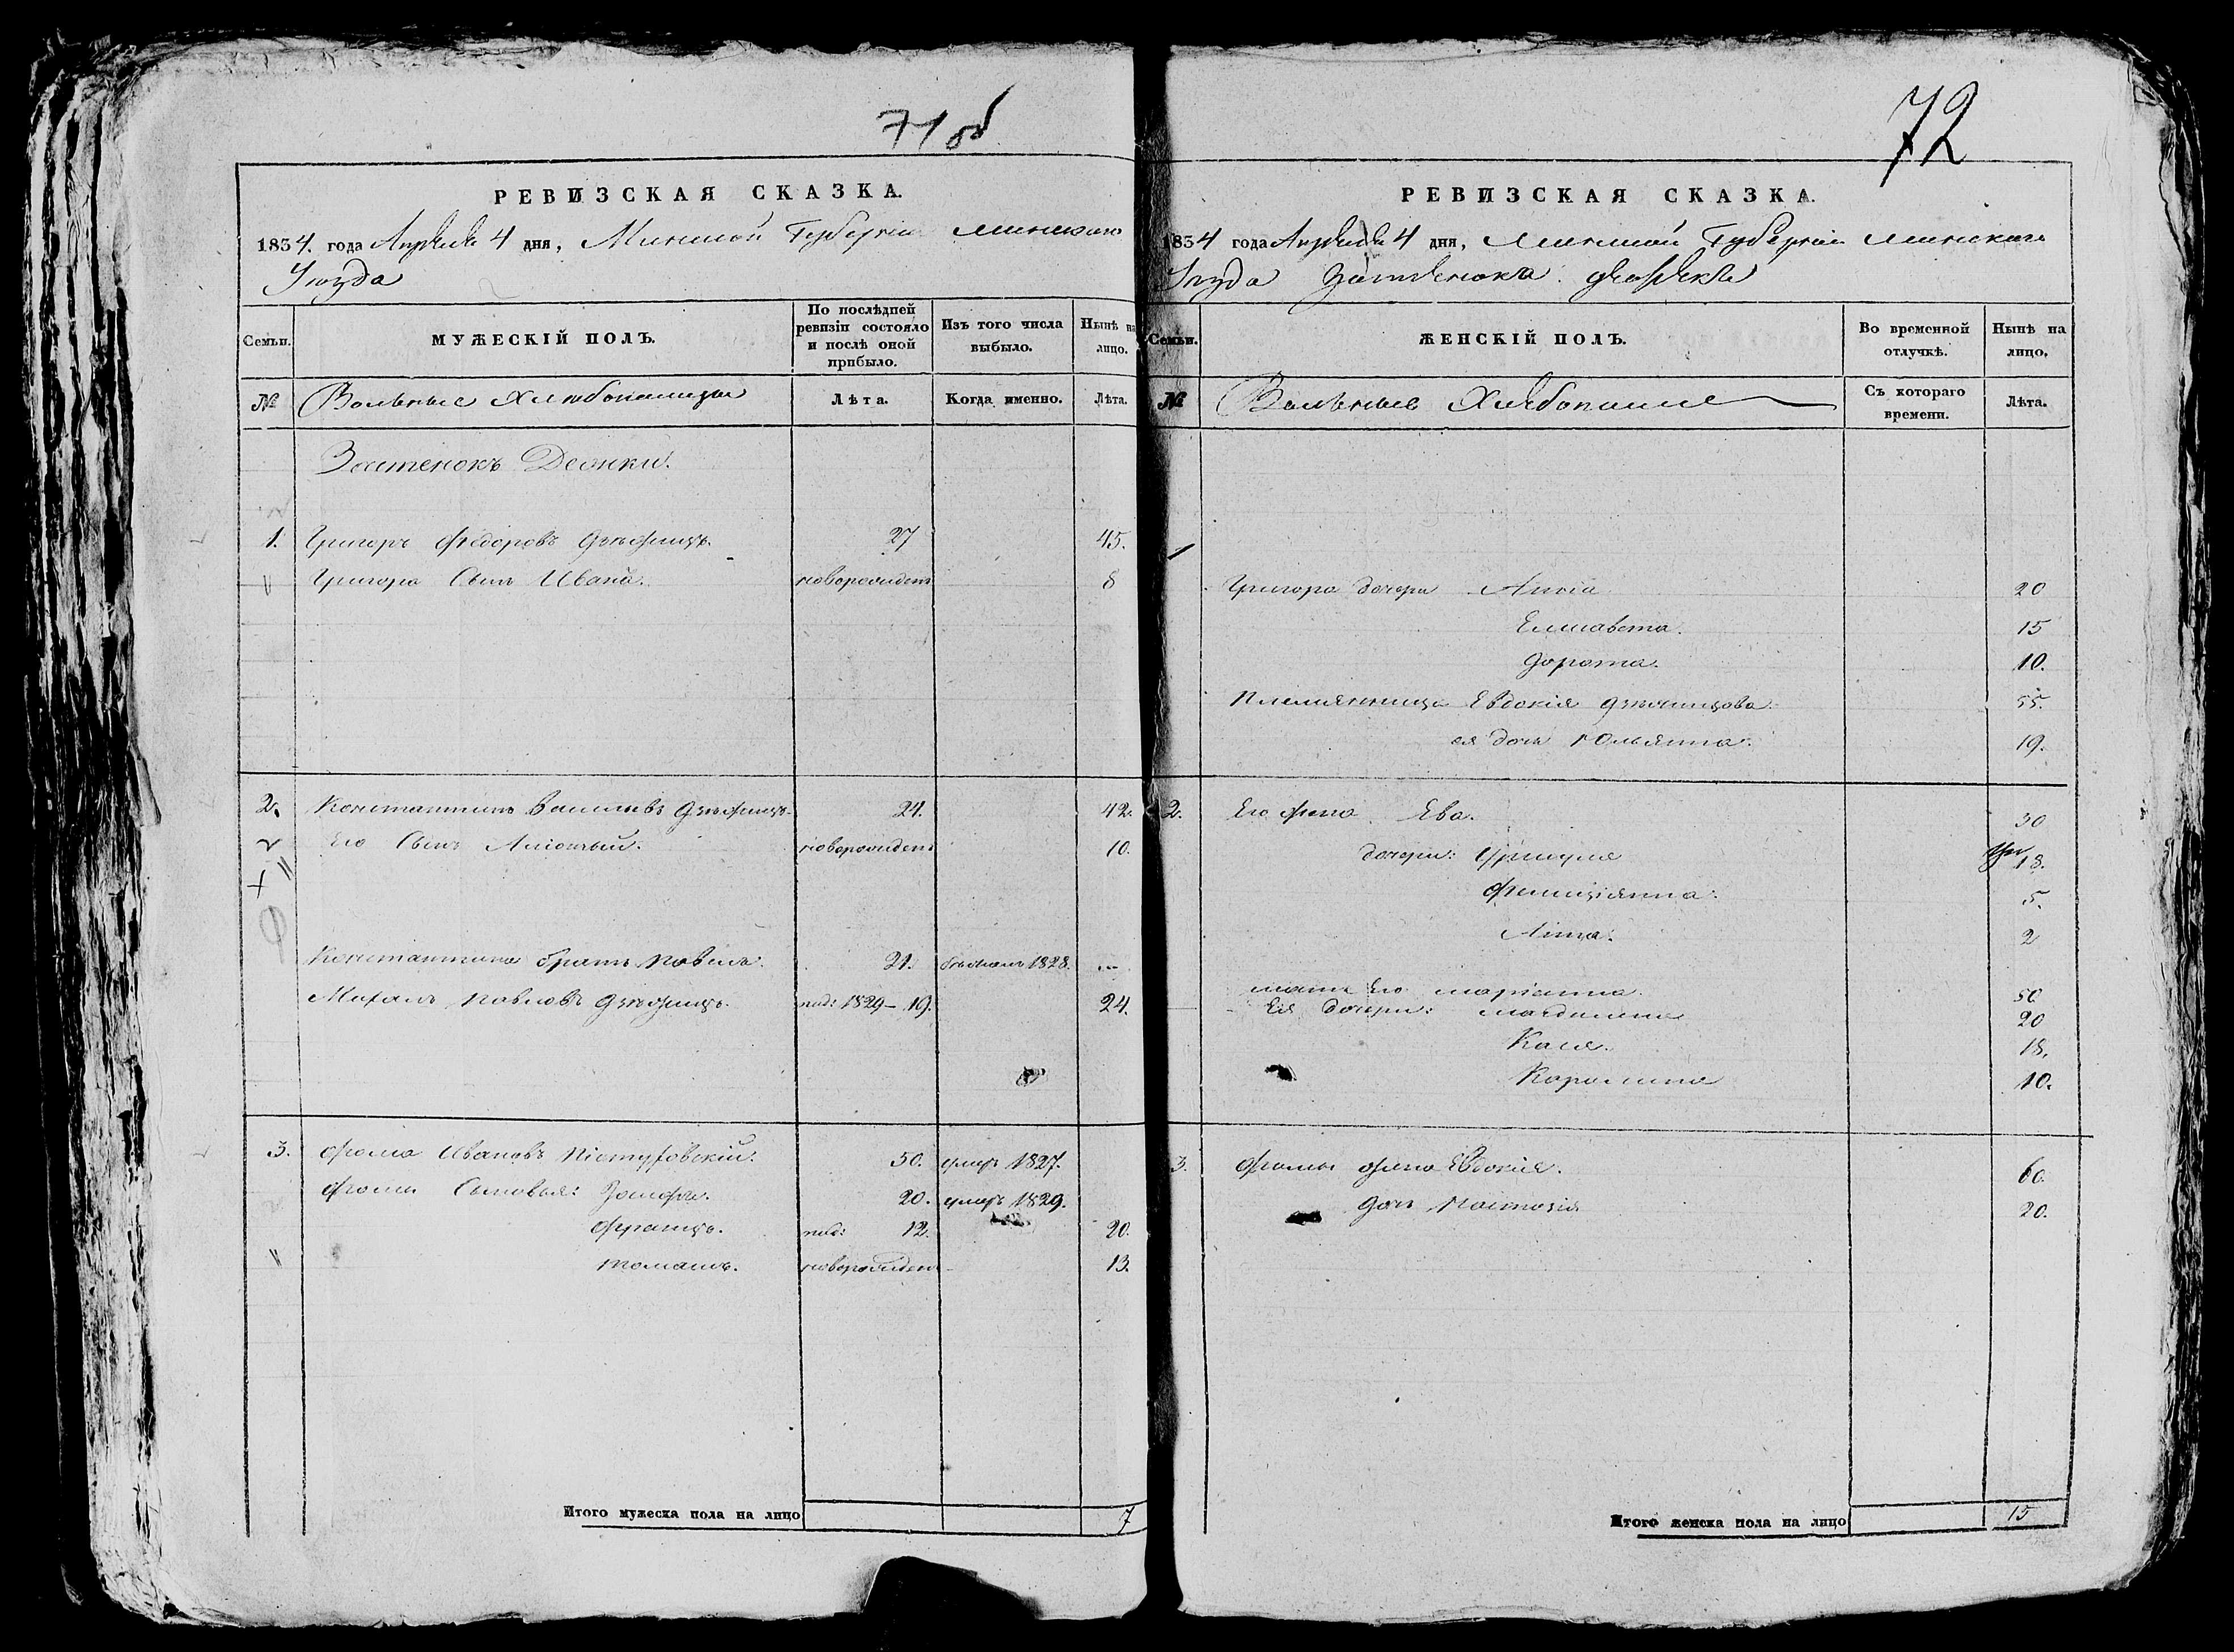 71 об
РЕВИЗСКАЯ СКАЗКА.
1834. года Апреля 4 дня, Минской Губернии Минскаго
Уезда
Семьи.
МУЖЕСКІЙ ПОЛЪ.
По послѣдней ревизіи состояло и послѣ оной прибыло.
Изъ того числа выбыло.
Нынѣ на лицо.
№
Вольные Хлебопашцы
Лѣта.
Когда именно.
Лѣта.
Застенокъ
1. Григоръ Федоровъ 27 45.
Григора Сынъ Иванъ. новорожден 8
2. Константинъ Васильевъ 24. 42.
Его Сынъ новорожден 10.
Константина братъ Павелъ. 21. 1828. ...
Михалъ Павловъ 1829 – 19. 24.
3. Фома Ивановъ 50. умеръ 1827.
Фомы Сыновья: Іосифъ. 20. умеръ 1829.
Францъ. 12. 20.
Томашъ. новорожден 13.
Итого мужеска пола на лицо 7
72
РЕВИЗСКАЯ СКАЗКА.
1834 года Апреля 4 дня, Минской Губернии Минскаго
Уезда Застенока
Семьи.
ЖЕНСКІЙ ПОЛЪ.
Во временной отлучкѣ.
Нынѣ на лицо.
№
Вольные Хлебопашцы
Съ котораго времени.
Лѣта.
Григора дочери Анна 20
Елисавета. 15
Дорота. 10.
Племянница Евдокія 55.
ея дочь Юльянна. 19.
2. Его жена Ева. 30
дочери: 18.
Фелиціянна. 5.
Анна. 2
мать Его Маріанна. 50
Ея дочери: Магдалина 20
Кася. 18.
Каролина 10.
3. Фомы жена Евдокія. 60.
дочь Настазія 20.
Итого женска пола на лицо 15